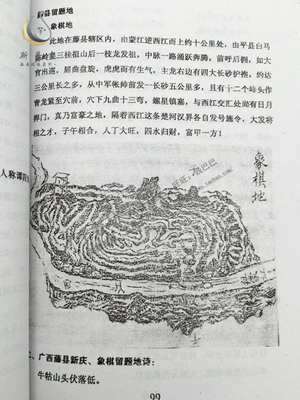 藤县留题地
象棋地
此地在藤县辖区内，由蒙江逆西江而上约十公里处，由平县白马
岭岭銮三柱祖山后一枝龙发祖，中脉一路涌跃奔腾，前呼后拥，如大
官出巡，屈曲盘旋，虎虎而有生气，主龙右边有四大长砂护袍，约达
三公里长之多，从中军帐帅前发一长砂五公里多，且有十二个峰头作
青龙紧至穴前，穴下九曲十三弯，螺星镇塞，与西江交汇处尚有日月
捍门，真乃富豪之地，隔着西江这条楚河汉界各自发号与施令，大发将
相之才，子午相合，人丁大旺，四水归财，富甲一方！
人称谭四
象棋地
二、广西藤县新庆、象棋留题地诗：
牛牯山头伏落低。
99